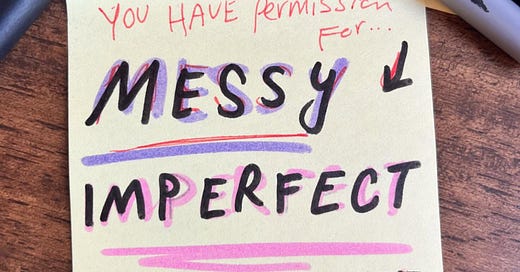 YOU HAVE Permission
For...
MESSY
IMPERFECT